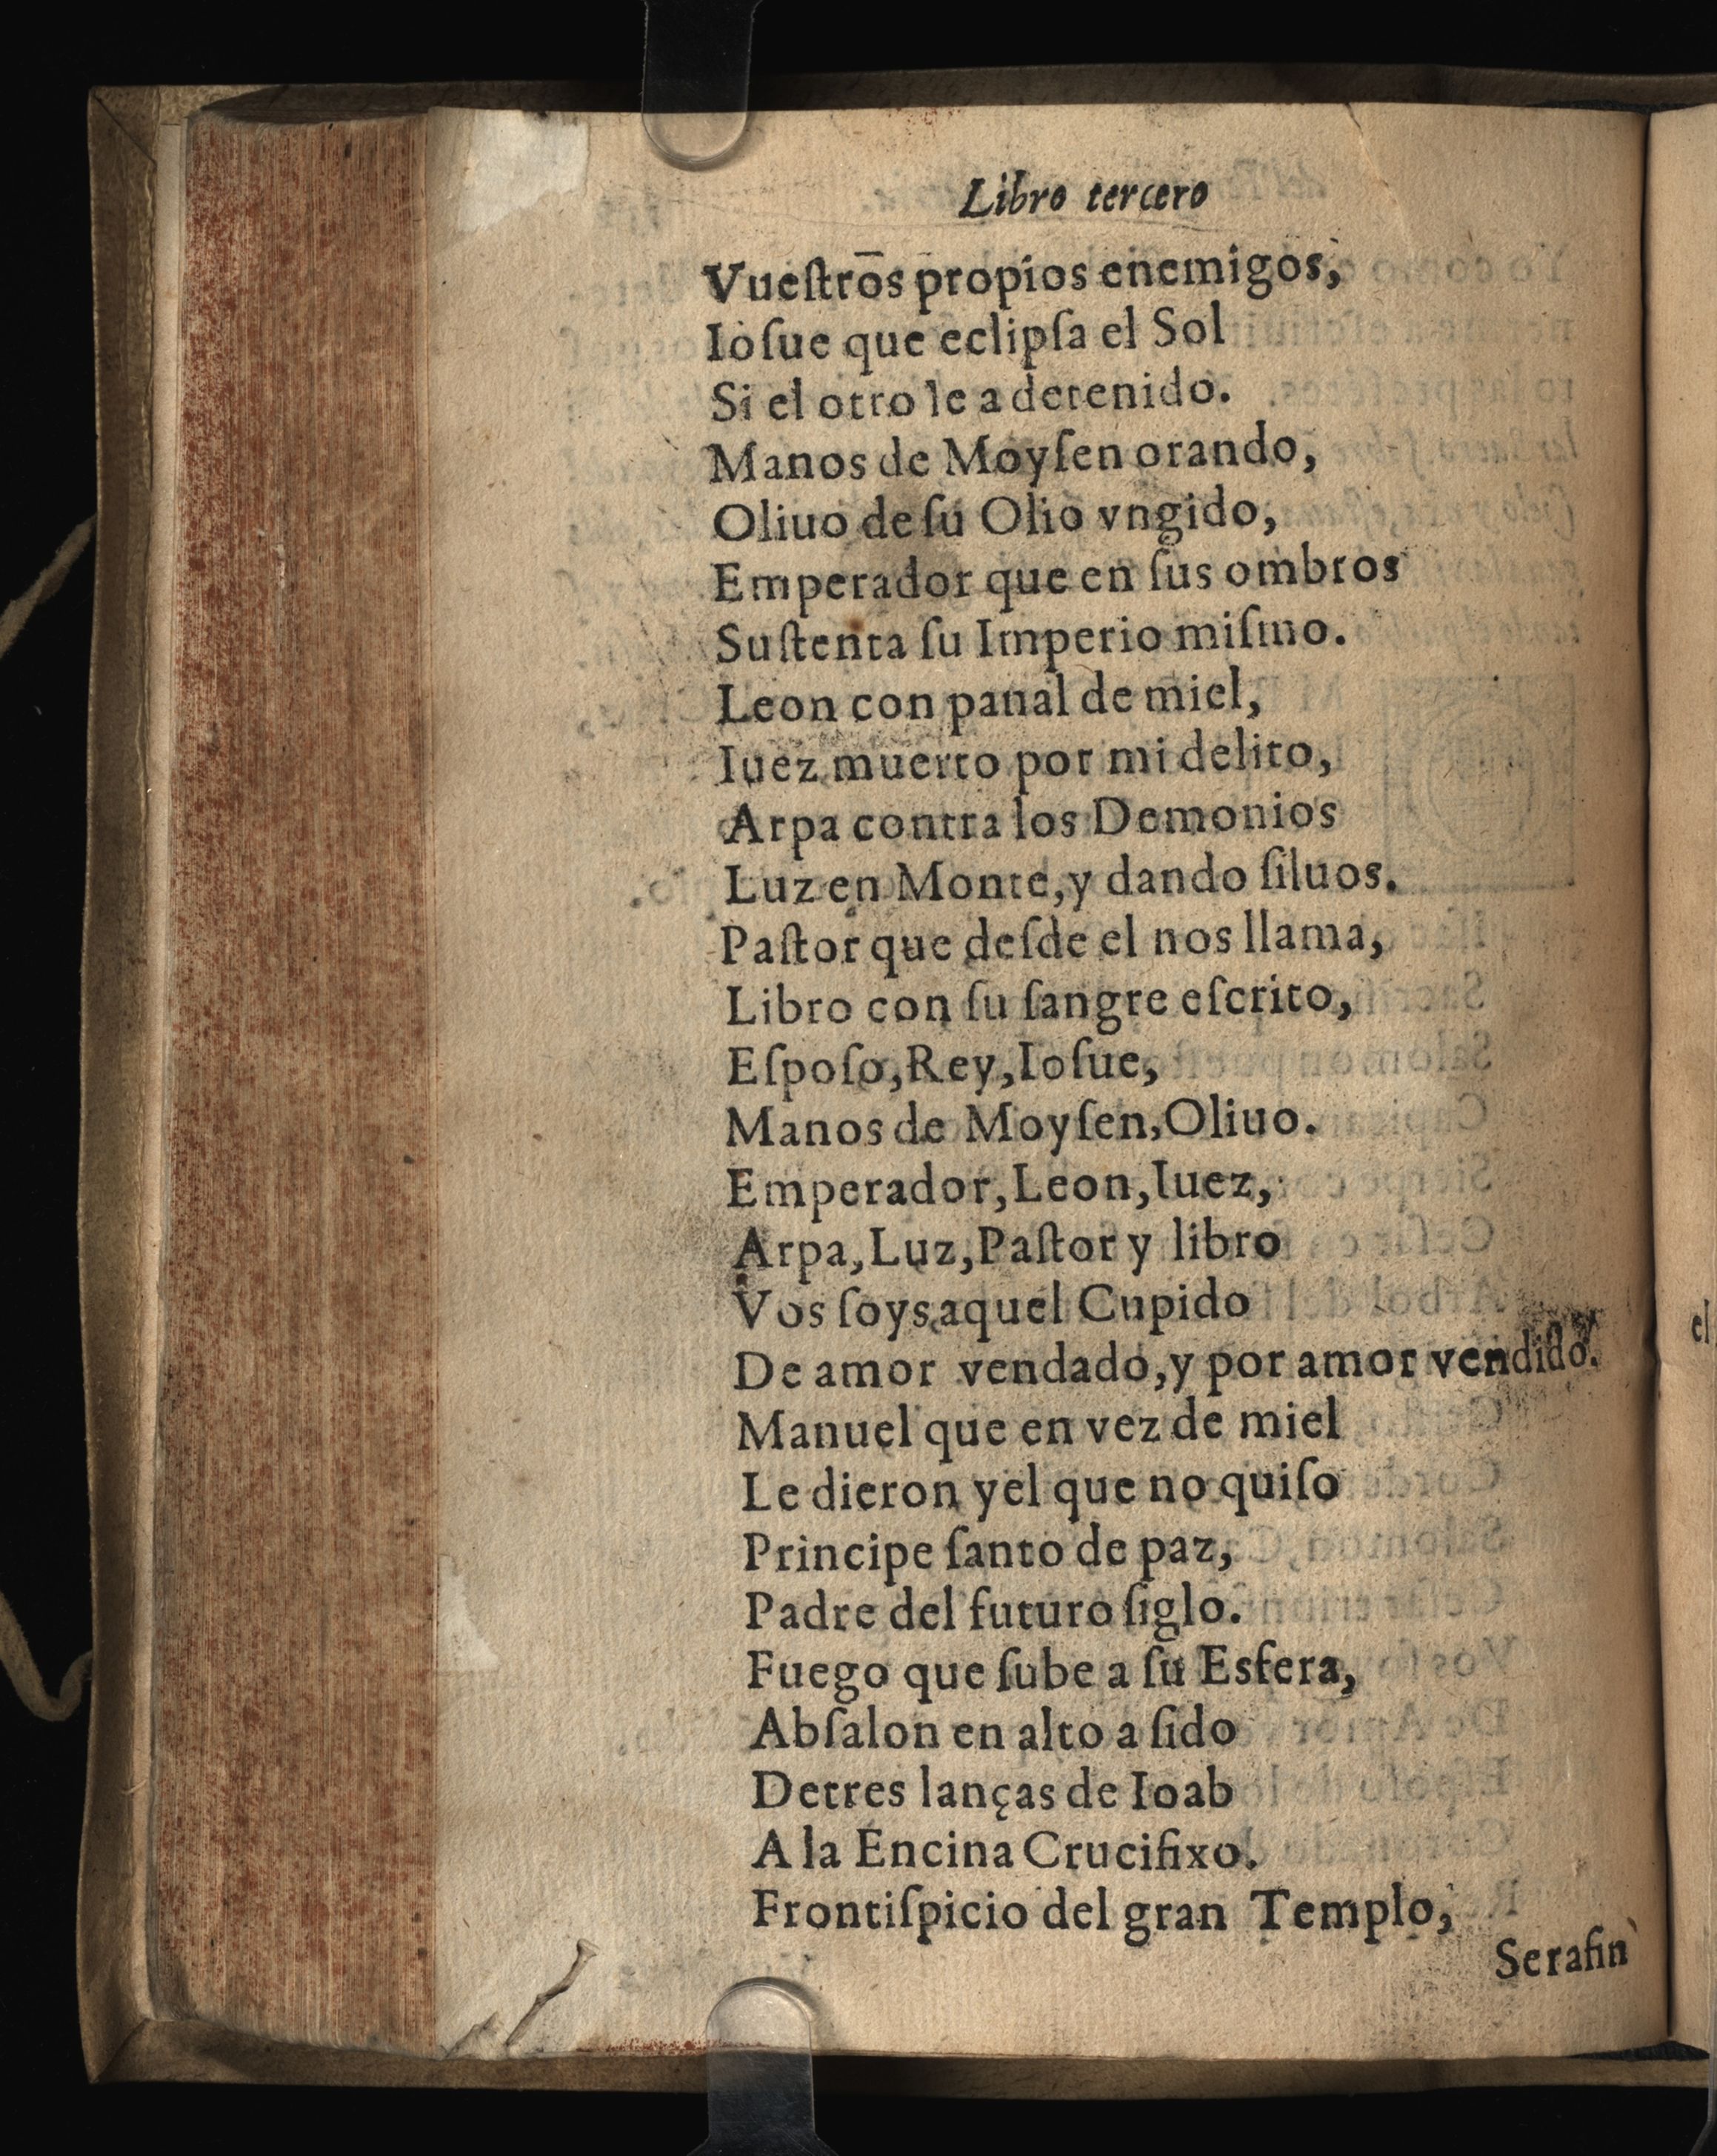 Libro tercero
Vueſtros propios enemigos,
Ioſue que eclipſa el Sol
Si el otro le a detenido.
Manos de Moyſen orando,
Oliuo de ſu Olio vngido,
Emperador que en ſus ombros
Suſtenta ſu Imperio miſmo.
Leon con panal de miel,
Iuez muerto por mi delito,
Arpa contra los Demonios
Luz en Monte, y dando ſiluos.
Paſtor que deſde el nos llama,
Libro con ſu ſangre eſcrito,
Eſpoſo, Rey, Ioſue,
Manos de Moyſen, Oliuo.
Emperador, Leon, Iuez,
Arpa, Luz, Paſtor y libro
Vos ſoys aquel Cupido
De amor vendado, y por amor vendido.
Manuel que en vez de miel
Le dieron yel que no quiſo
Principe ſanto de paz,
Padre del futuro ſiglo.
Fuego que ſube a ſu Esfera,
Abſalon en alto a ſido
De tres lanças de Ioab
A la Encina Crucifixo.
Frontiſpicio del gran Templo,
Serafin
el